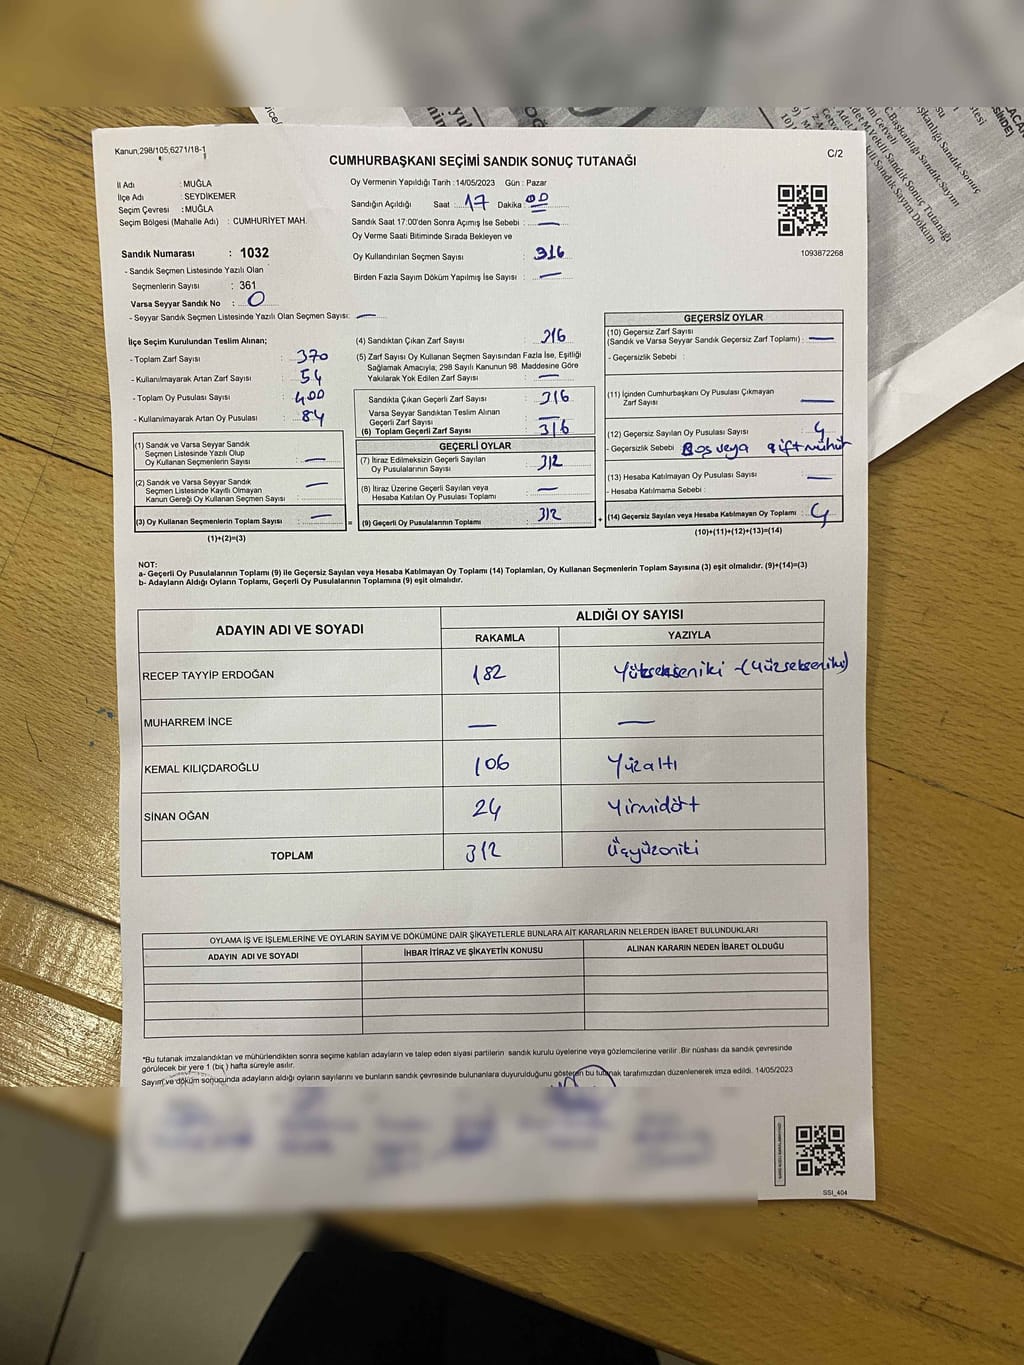 Kanun,298/105,6271/18-1
CUMHURBAŞKANI SEÇİMİ SANDIK SONUÇ TUTANAĞI
C/2
İl Adı : MUĞLA
İlçe Adı : SEYDİKEMER
Seçim Çevresi : MUĞLA
Seçim Bölgesi (Mahalle Adı) : CUMHURİYET MAH.
Oy Vermenin Yapıldığı Tarih :14/05/2023 Gün : Pazar
Sandığın Açıldığı Saat : 17 Dakika : 00
Sandık Saat 17:00'den Sonra Açımış İse Sebebi : —
Oy Verme Saati Bitiminde Sırada Bekleyen ve
Oy Kullandırılan Seçmen Sayısı : 316
Birden Fazla Sayım Döküm Yapılmış İse Sayısı : —
1093872268
Sandık Numarası : 1032
- Sandık Seçmen Listesinde Yazılı Olan
Seçmenlerin Sayısı : 361
Varsa Seyyar Sandık No : 0
- Seyyar Sandık Seçmen Listesinde Yazılı Olan Seçmen Sayısı: —
İlçe Seçim Kurulundan Teslim Alınan;
- Toplam Zarf Sayısı : 370
- Kullanılmayarak Artan Zarf Sayısı : 54
- Toplam Oy Pusulası Sayısı : 400
- Kullanılmayarak Artan Oy Pusulası : 84
(1) Sandık ve Varsa Seyyar Sandık
Seçmen Listesinde Yazılı Olup
Oy Kullanan Seçmenlerin Sayısı : —
(2) Sandık ve Varsa Seyyar Sandık
Seçmen Listesinde Kayıtlı Olmayan
Kanun Gereği Oy Kullanan Seçmen Sayısı : —
(3) Oy Kullanan Seçmenlerin Toplam Sayısı : —
(1)+(2)=(3)
(4) Sandıktan Çıkan Zarf Sayısı : 316
(5) Zarf Sayısı Oy Kullanan Seçmen Sayısından Fazla İse, Eşitliği
Sağlamak Amacıyla; 298 Sayılı Kanunun 98. Maddesine Göre
Yakılarak Yok Edilen Zarf Sayısı : —
Sandıkta Çıkan Geçerli Zarf Sayısı : 316
Varsa Seyyar Sandıktan Teslim Alınan
Geçerli Zarf Sayısı : —
(6) Toplam Geçerli Zarf Sayısı : 316
GEÇERLİ OYLAR
(7) İtiraz Edilmeksizin Geçerli Sayılan
Oy Pusulalarının Sayısı : 312
(8) İtiraz Üzerine Geçerli Sayılan veya
Hesaba Katılan Oy Pusulası Toplamı : —
= (9) Geçerli Oy Pusulalarının Toplamı : 312
GEÇERSİZ OYLAR
(10) Geçersiz Zarf Sayısı
(Sandık ve Varsa Seyyar Sandık Geçersiz Zarf Toplamı) : —
- Geçersizlik Sebebi :
(11) İçinden Cumhurbaşkanı Oy Pusulası Çıkmayan
Zarf Sayısı —
(12) Geçersiz Sayılan Oy Pusulası Sayısı : 4
- Geçersizlik Sebebi : Boş veya çift mühür
(13) Hesaba Katılmayan Oy Pusulası Sayısı : —
- Hesaba Katılmama Sebebi :
+ (14) Geçersiz Sayılan veya Hesaba Katılmayan Oy Toplamı : 4
(10)+(11)+(12)+(13)=(14)
NOT:
a- Geçerli Oy Pusulalarının Toplamı (9) ile Geçersiz Sayılan veya Hesaba Katılmayan Oy Toplamı (14) Toplamları, Oy Kullanan Seçmenlerin Toplam Sayısına (3) eşit olmalıdır. (9)+(14)=(3)
b- Adayların Aldığı Oyların Toplamı, Geçerli Oy Pusulalarının Toplamına (9) eşit olmalıdır.
ADAYIN ADI VE SOYADI
ALDIĞI OY SAYISI
RAKAMLA YAZIYLA
RECEP TAYYİP ERDOĞAN 182 Yüksekseniki -(Yüzsekseniki)
MUHARREM İNCE — —
KEMAL KILIÇDAROĞLU 106 Yüzaltı
SİNAN OĞAN 24 Yirmidört
TOPLAM 312 Üçyüzoniki
OYLAMA İŞ VE İŞLEMLERİNE VE OYLARIN SAYIM VE DÖKÜMÜNE DAİR ŞİKAYETLERLE BUNLARA AİT KARARLARIN NELERDEN İBARET BULUNDUKLARI
ADAYIN ADI VE SOYADI İHBAR İTİRAZ VE ŞİKAYETİN KONUSU ALINAN KARARIN NEDEN İBARET OLDUĞU
*Bu tutanak imzalandıktan ve mühürlendikten sonra seçime katılan adayların ve talep eden siyasi partilerin sandık kurulu üyelerine veya gözlemcilerine verilir .Bir nüshası da sandık çevresinde
görülecek bir yere 1 (bir) hafta süreyle asılır.
Sayım ve döküm sonucunda adayların aldığı oyların sayılarını ve bunların sandık çevresinde bulunanlara duyurulduğunu gösteren bu tutanak tarafımızdan düzenlenerek imza edildi. 14/05/2023
SSI_404